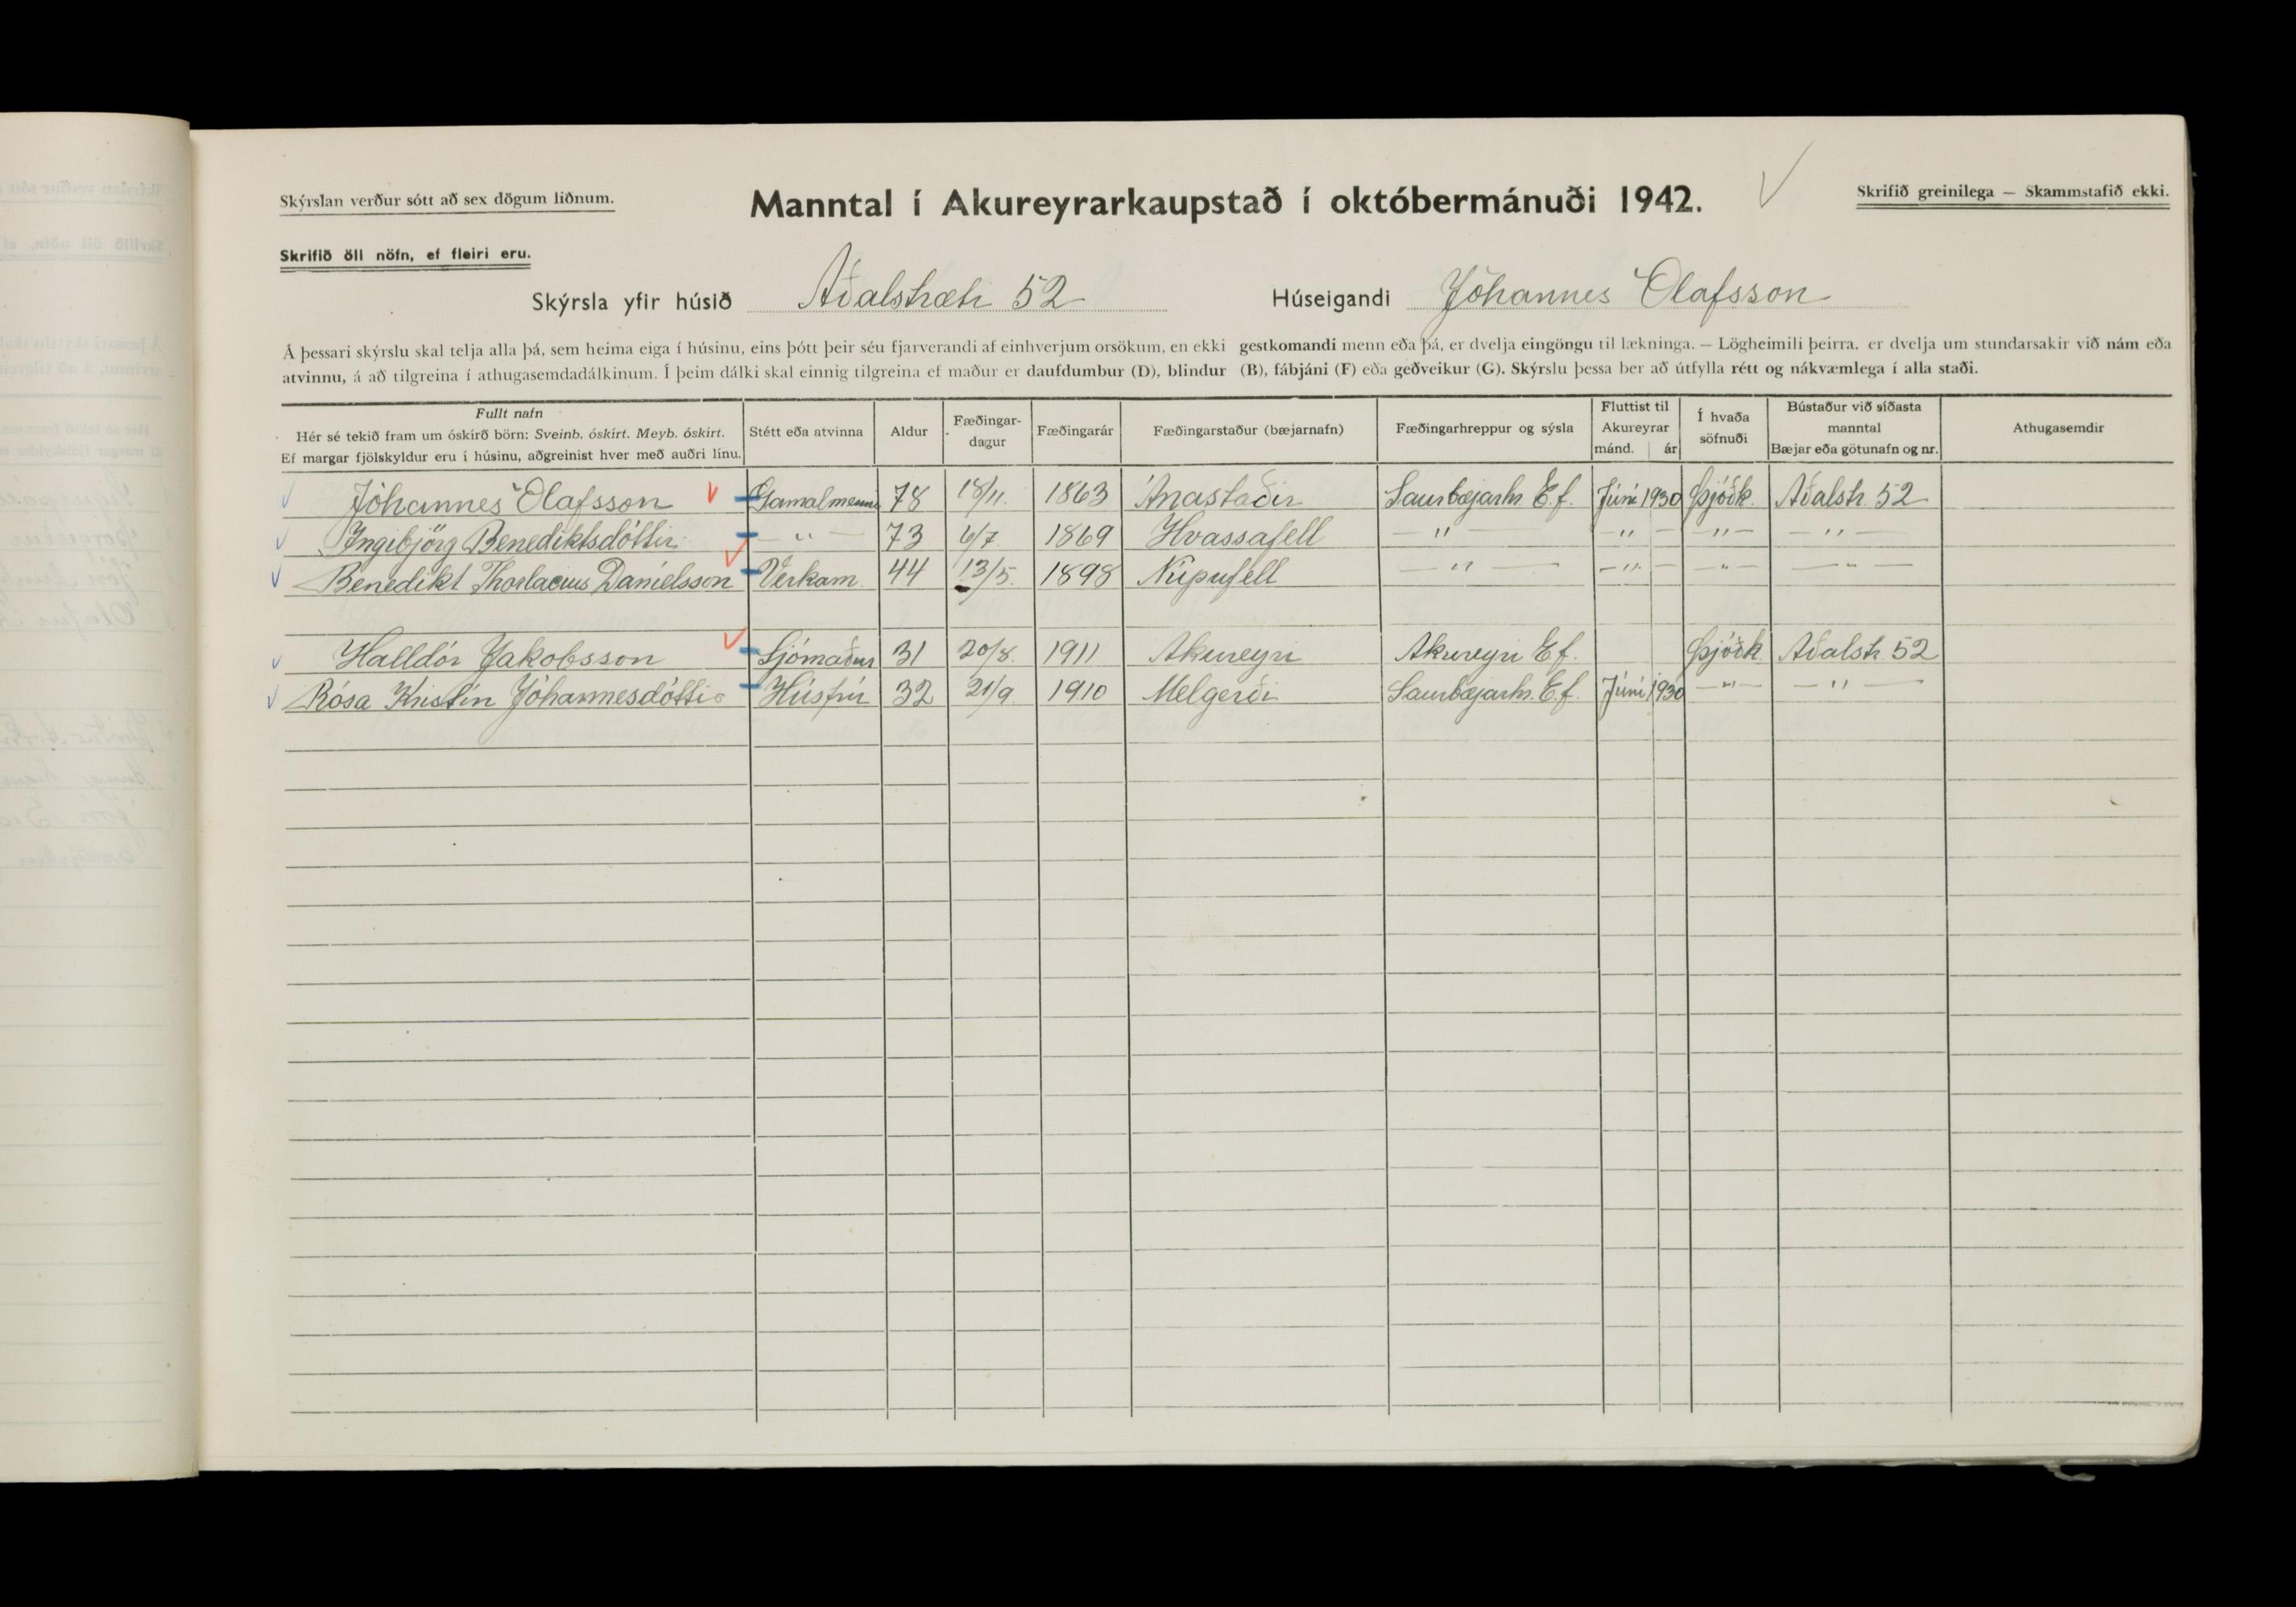 Skýrslan verður sótt að sex dögum liðnum.
Manntal í Akureyrarkaupstað í októbermánuði 1942.
Skrifið greinilega — Skammstafið ekki.
Skrifið öll nöfn, ef fleiri eru.
Skýrsla yfir húsið Aðalstræti 52 Húseigandi Jóhannes Ólafsson
Á þessari skýrslu skal telja alla þá, sem heima eiga í húsinu, eins þótt þeir séu fjarverandi af einhverjum orsökum, en ekki gestkomandi menn eða þá, er dvelja eingöngu til lækninga. — Lögheimili þeirra, er dvelja um stundarsakir við nám eða
atvinnu, á að tilgreina í athugasemdadálkinum. Í þeim dálki skal einnig tilgreina ef maður er daufdumbur (D), blindur (B), fábjáni (F) eða geðveikur (G). Skýrslu þessa ber að útfylla rétt og nákvæmlega í alla staði.
Fullt nafn
Hér sé tekið fram um óskírð börn: Sveinb. óskírt. Meyb. óskírt.
Ef margar fjölskyldur eru í húsinu, aðgreinist hver með auðri línu.
Stétt eða atvinna
Aldur
Fæðingar-
dagur
Fæðingarár
Fæðingarstaður (bæjarnafn)
Fæðingarhreppur og sýsla
Fluttist til
Akureyrar
mánd. ár
Í hvaða
söfnuði
Bústaður við síðasta
manntal
Bæjar eða götunafn og nr.
Athugasemdir
Jóhannes Ólafsson Gamalmenni 78 18/11. 1863 Ánastaðir Saurbæjarhr. E.f. Júní 1930 Þjóðk. Aðalstr. 52
Ingibjörg Benediktsdóttir — " — 73 6/7 1869 Hvassafell — " — — " — — " — — " —
Benedikt Thorlacius Daníelsson Verkam. 44 13/5. 1898 Núpufell — " — — " — — " — — " —
Halldór Jakobsson Sjómaður 31 20/8. 1911 Akureyri Akureyri E.f. Þjóðk Aðalstr. 52
Rósa Kristín Jóhannesdóttir Húsfrú 32 21/9. 1910 Melgerði Saurbæjarhr. E.f. Júní 1930 — " — — " —